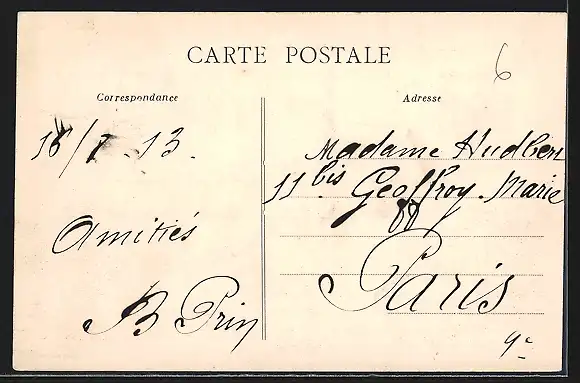 CARTE POSTALE
6
Correspondance
Adresse
15/7 - 13.
Madame Hudbert
11 bis Geoffroy-Marie
Amitiés
Paris
B Prin
9e